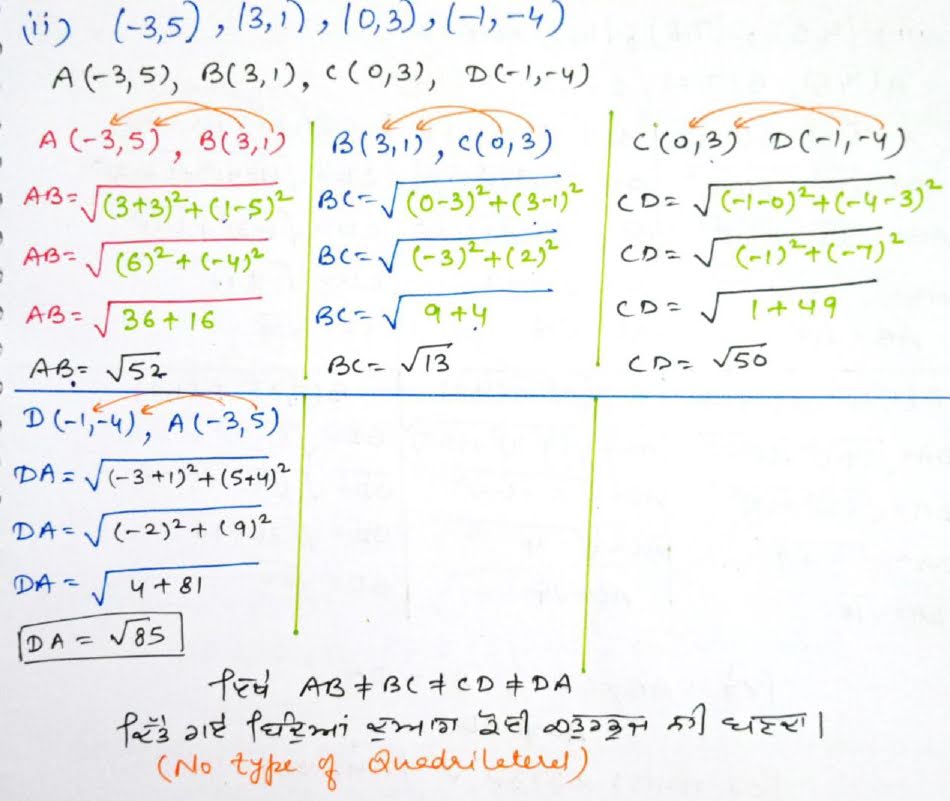 (ii) (-3,5), (3,1), (0,3), (-1,-4)
A(-3,5), B(3,1), C(0,3), D(-1,-4)
A(-3,5), B(3,1)
AB=√(3+3)²+(1-5)²
AB=√(6)²+(-4)²
AB=√36+16
AB=√52
B(3,1), C(0,3)
BC=√(0-3)²+(3-1)²
BC=√(-3)²+(2)²
BC=√9+4
BC=√13
C(0,3) D(-1,-4)
CD=√(-1-0)²+(-4-3)²
CD=√(-1)²+(-7)²
CD=√1+49
CD=√50
D(-1,-4), A(-3,5)
DA=√(-3+1)²+(5+4)²
DA=√(-2)²+(9)²
DA=√4+81
DA=√85
ਇੱਥੇ AB≠BC≠CD≠DA
ਦਿੱਤੇ ਗਏ ਬਿੰਦੂਆਂ ਦੁਆਰਾ ਕੋਈ ਚਤੁਰਭੁਜ ਨਹੀਂ ਬਣਦਾ।
(No type of Quadrilateral)